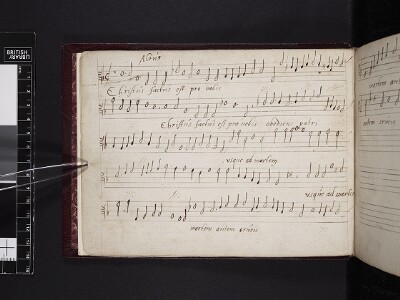 BRITISH
LIBRARY
Altus
Christus factus est pro nobis
Christus factus est pro nobis obediens patri
usque ad mortem
usque ad mortem
mortem autem crucis
mortem autem
autem crucis